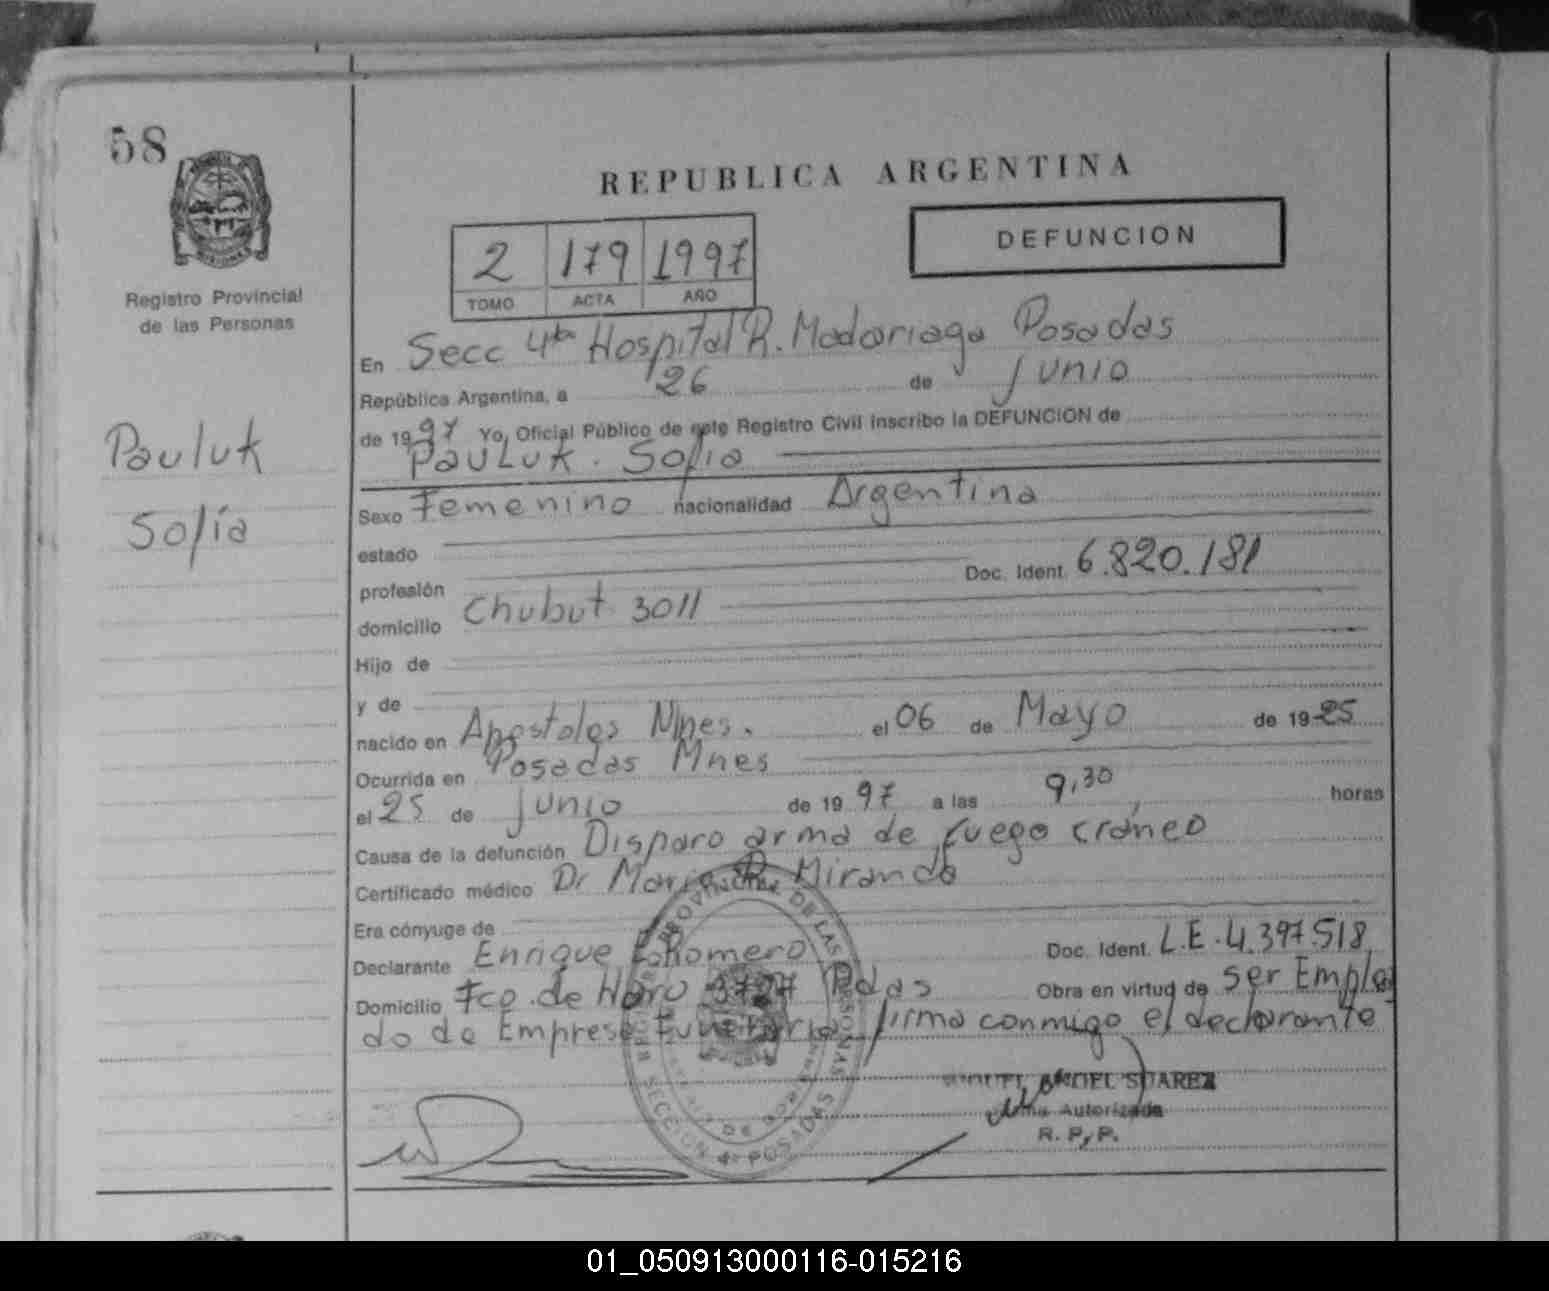 58
Registro Provincial
de las Personas
Pauluk
Sofía
REPUBLICA ARGENTINA
DEFUNCION
2 179 1997
TOMO ACTA AÑO
En Secc 4ta Hospital R. Madariaga Posadas
República Argentina, a 26 de junio
de 1997 Yo, Oficial Público de este Registro Civil inscribo la DEFUNCION de
PAULUK. Sofia
Sexo Femenino nacionalidad Argentina
estado
profesión Doc. Ident. 6.820.181
domicilio Chubut 3011
Hijo de
y de
nacido en Apostoles Mnes. el 06 de Mayo de 1925
Ocurrida en Posadas Mnes
el 25 de junio de 1997 a las 9,30 horas
Causa de la defunción Disparo arma de fuego cráneo
Certificado médico Dr Mario Miranda
Era cónyuge de
Declarante Enrique Romero Doc. Ident. L.E. 4.397.518
Domicilio Fco. de Haro Pdas Obra en virtud de ser Emplea
do de Empresa Funeraria firma conmigo el declarante
MIGUEL ANGEL SUAREZ
Firma Autorizada
R. P. P.
PROVINCIAL DE LAS PERSONAS
SECCION 4a POSADAS
01_050913000116-015216